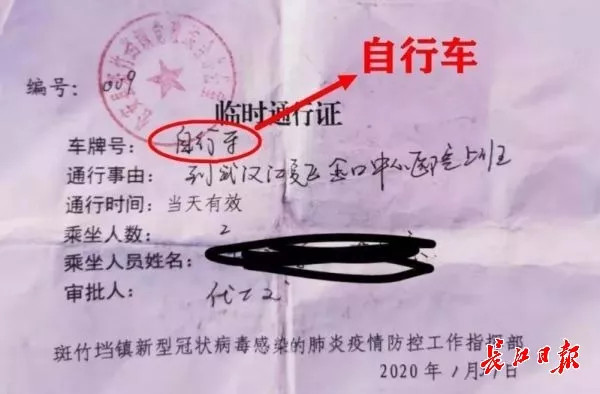 自行车
编号: 009
临时通行证
车牌号: 自行车
通行事由: 到武汉江夏区金口中心医院上班
通行时间: 当天有效
乘坐人数: 2
乘坐人员姓名:
审批人:
斑竹垱镇新型冠状病毒感染的肺炎疫情防控工作指挥部
2020年1月31日
长江日报